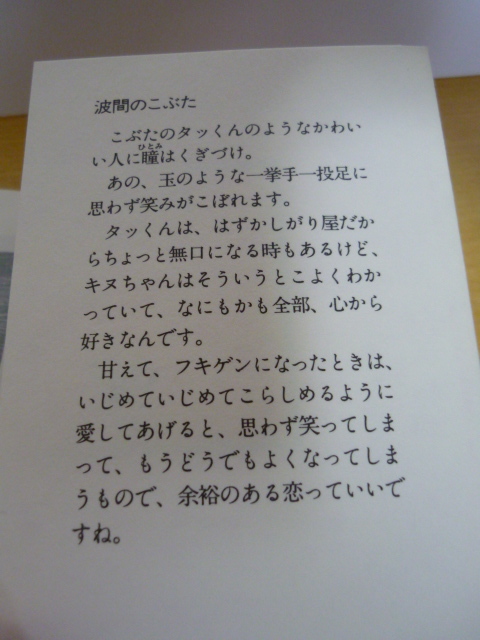 波間のこぶた
こぶたのタッくんのようなかわい
い人に瞳はくぎづけ。
ひとみ
あの、玉のような一挙手一投足に
思わず笑みがこぼれます。
タッくんは、はずかしがり屋だか
らちょっと無口になる時もあるけど、
キヌちゃんはそういうとこよくわか
っていて、なにもかも全部、心から
好きなんです。
甘えて、フキゲンになったときは、
いじめていじめてこらしめるように
愛してあげると、思わず笑ってしま
って、もうどうでもよくなってしま
うもので、余裕のある恋っていいで
すね。